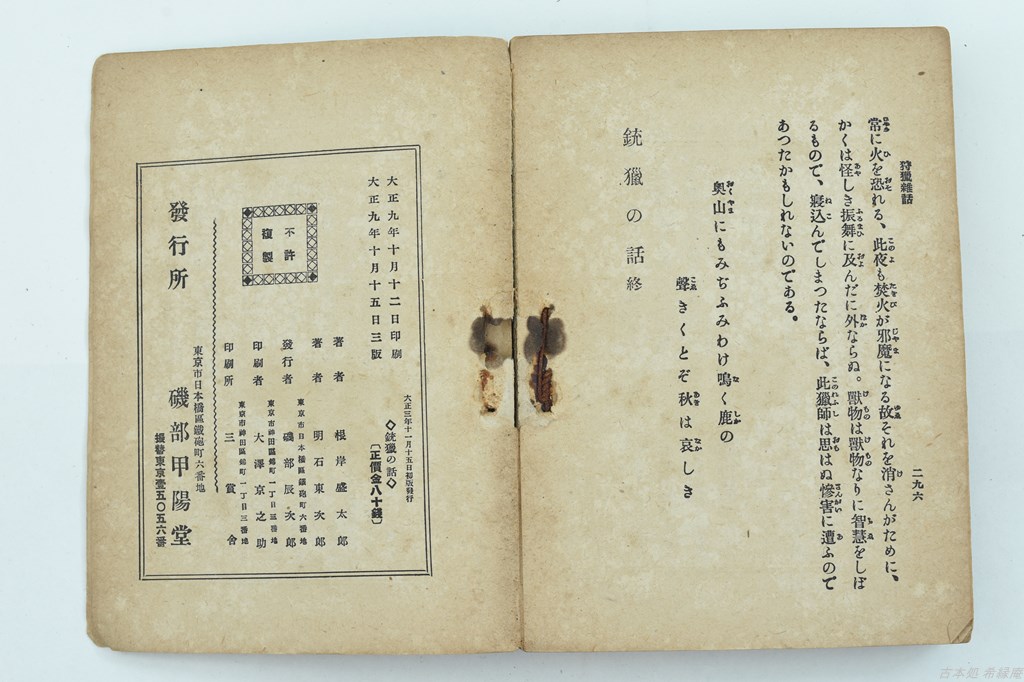 狩獵雜話
二九六
常に火を恐れる、此夜も焚火が邪魔になる故それを消さんがために、
かくは怪しき振舞に及んだに外ならぬ。獸物は獸物なりに智慧をしぼ
るもので、寢込んでしまつたならば、此獵師は思はぬ慘害に遭ふので
あつたかもしれないのである。
奧山にもみぢふみわけ鳴く鹿の
聲きくとぞ秋は哀しき
銃獵の話終
大正三年十一月十五日初版發行
大正九年十月十二日印刷
大正九年十月十五日三版
◇銃獵の話◇
〔正價金八十錢〕
不許
複製
著者 根岸盛太郎
著者 明石東次郎
東京市日本橋區鐵砲町六番地
發行者 磯部辰次郎
東京市神田區錦町一丁目三番地
印刷者 大澤京之助
東京市神田區錦町一丁目三番地
印刷所 三賞舍
東京市日本橋區鐵砲町六番地
發行所 磯部甲陽堂
振替東京壹五〇五六番
古本処 希縁庵